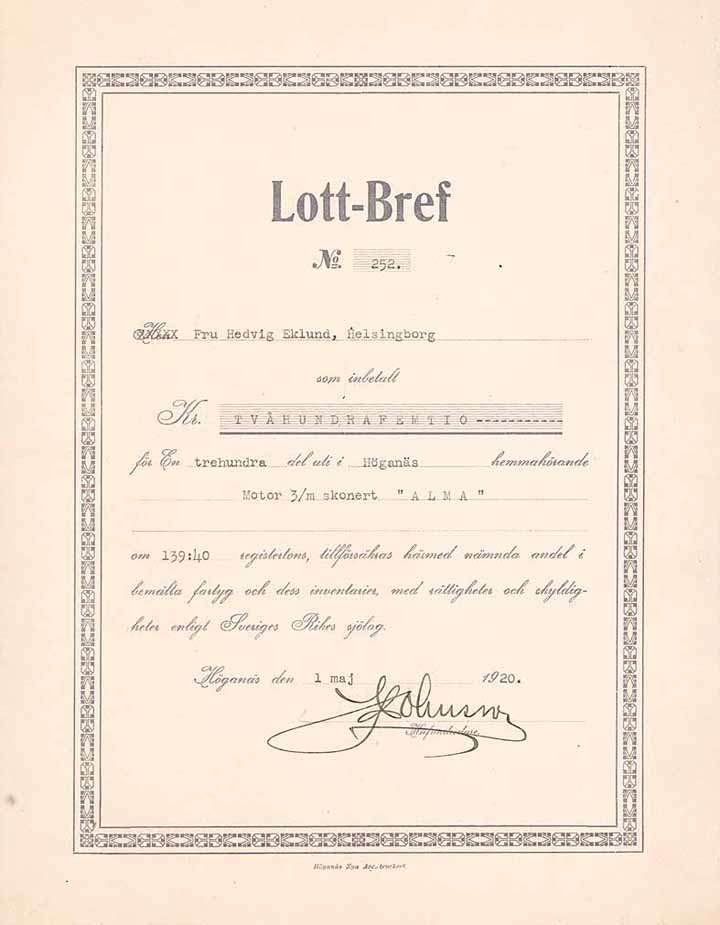 Lott-Bref
No. 252.
Fru Hedvig Eklund, Helsingborg
som inbetalt
Kr. TVÅHUNDRAFEMTIO-----------
för En trehundra del uti i Höganäs hemmahörande
Motor 3/m skonert "ALMA"
om 139:40 registertons, tillförsäkras härmed nämnda andel i
bemälta fartyg och dess inventarier, med rättigheter och skyldig-
heter enligt Sveriges Rikes sjölag.
Höganäs den 1 maj 1920.
Hufvudredare.
Höganäs Nya Acc.tryckeri.